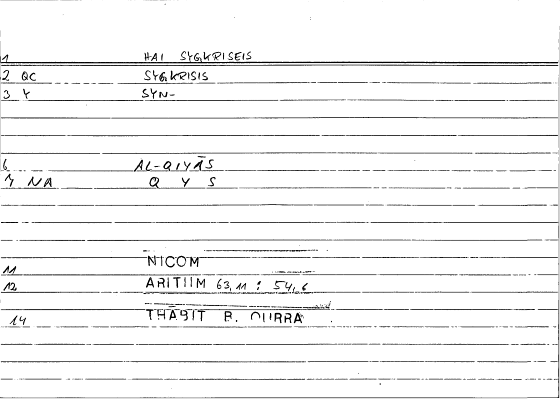 1 HAI SYGKRISEIS
2 QC SYGKRISIS
3 Y SYN-
6 AL-QIYĀS
7 NA Q Y S
11 NICOM
12 ARITIIM 63,11 : 54,6
14 THĀBIT B. QURRA